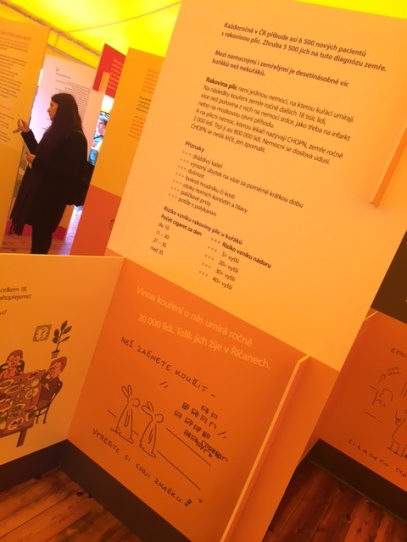 Každoročně v ČR přibude asi 6 500 nových pacientů
s rakovinou plic. Zhruba 5 500 jich na tuto diagnózu zemře.
Mezi nemocnými i zemřelými je desetinásobně víc
kuřáků než nekuřáků.
Rakovina plic není jedinou nemocí, na kterou kuřáci umírají.
Na následky kouření zemře ročně dalších 18 tisíc lidí,
více než polovina z nich na nemoci srdce, jako třeba na infarkt
nebo na mozkovou cévní příhodu.
A na plicní nemoc, kterou lékaři nazývají CHOPN, zemře ročně
2 000 lidí. Trpí jí asi 800 000 lidí. Nemocní se doslova udusí.
CHOPN se nedá léčit, jen zpomalit.
Příznaky
dráždivý kašel
výrazný úbytek na váze za poměrně krátkou dobu
dušnost
bolest hrudníku či kostí
otoky horních končetin a hlavy
paličkové prsty
potíže s polykáním
Riziko vzniku rakoviny plic u kuřáků
Počet cigaret za den Riziko vzniku nádoru
do 10 5× vyšší
11 – 20 20× vyšší
21 – 30 30× vyšší
nad 35 40× vyšší
Vinou kouření u nás umírá ročně
20 000 lidí. Tolik jich žije v Říčanech.
NEŽ ZAČNETE KOUŘIT –
VYBERTE SI SVOJI ZNAČKU